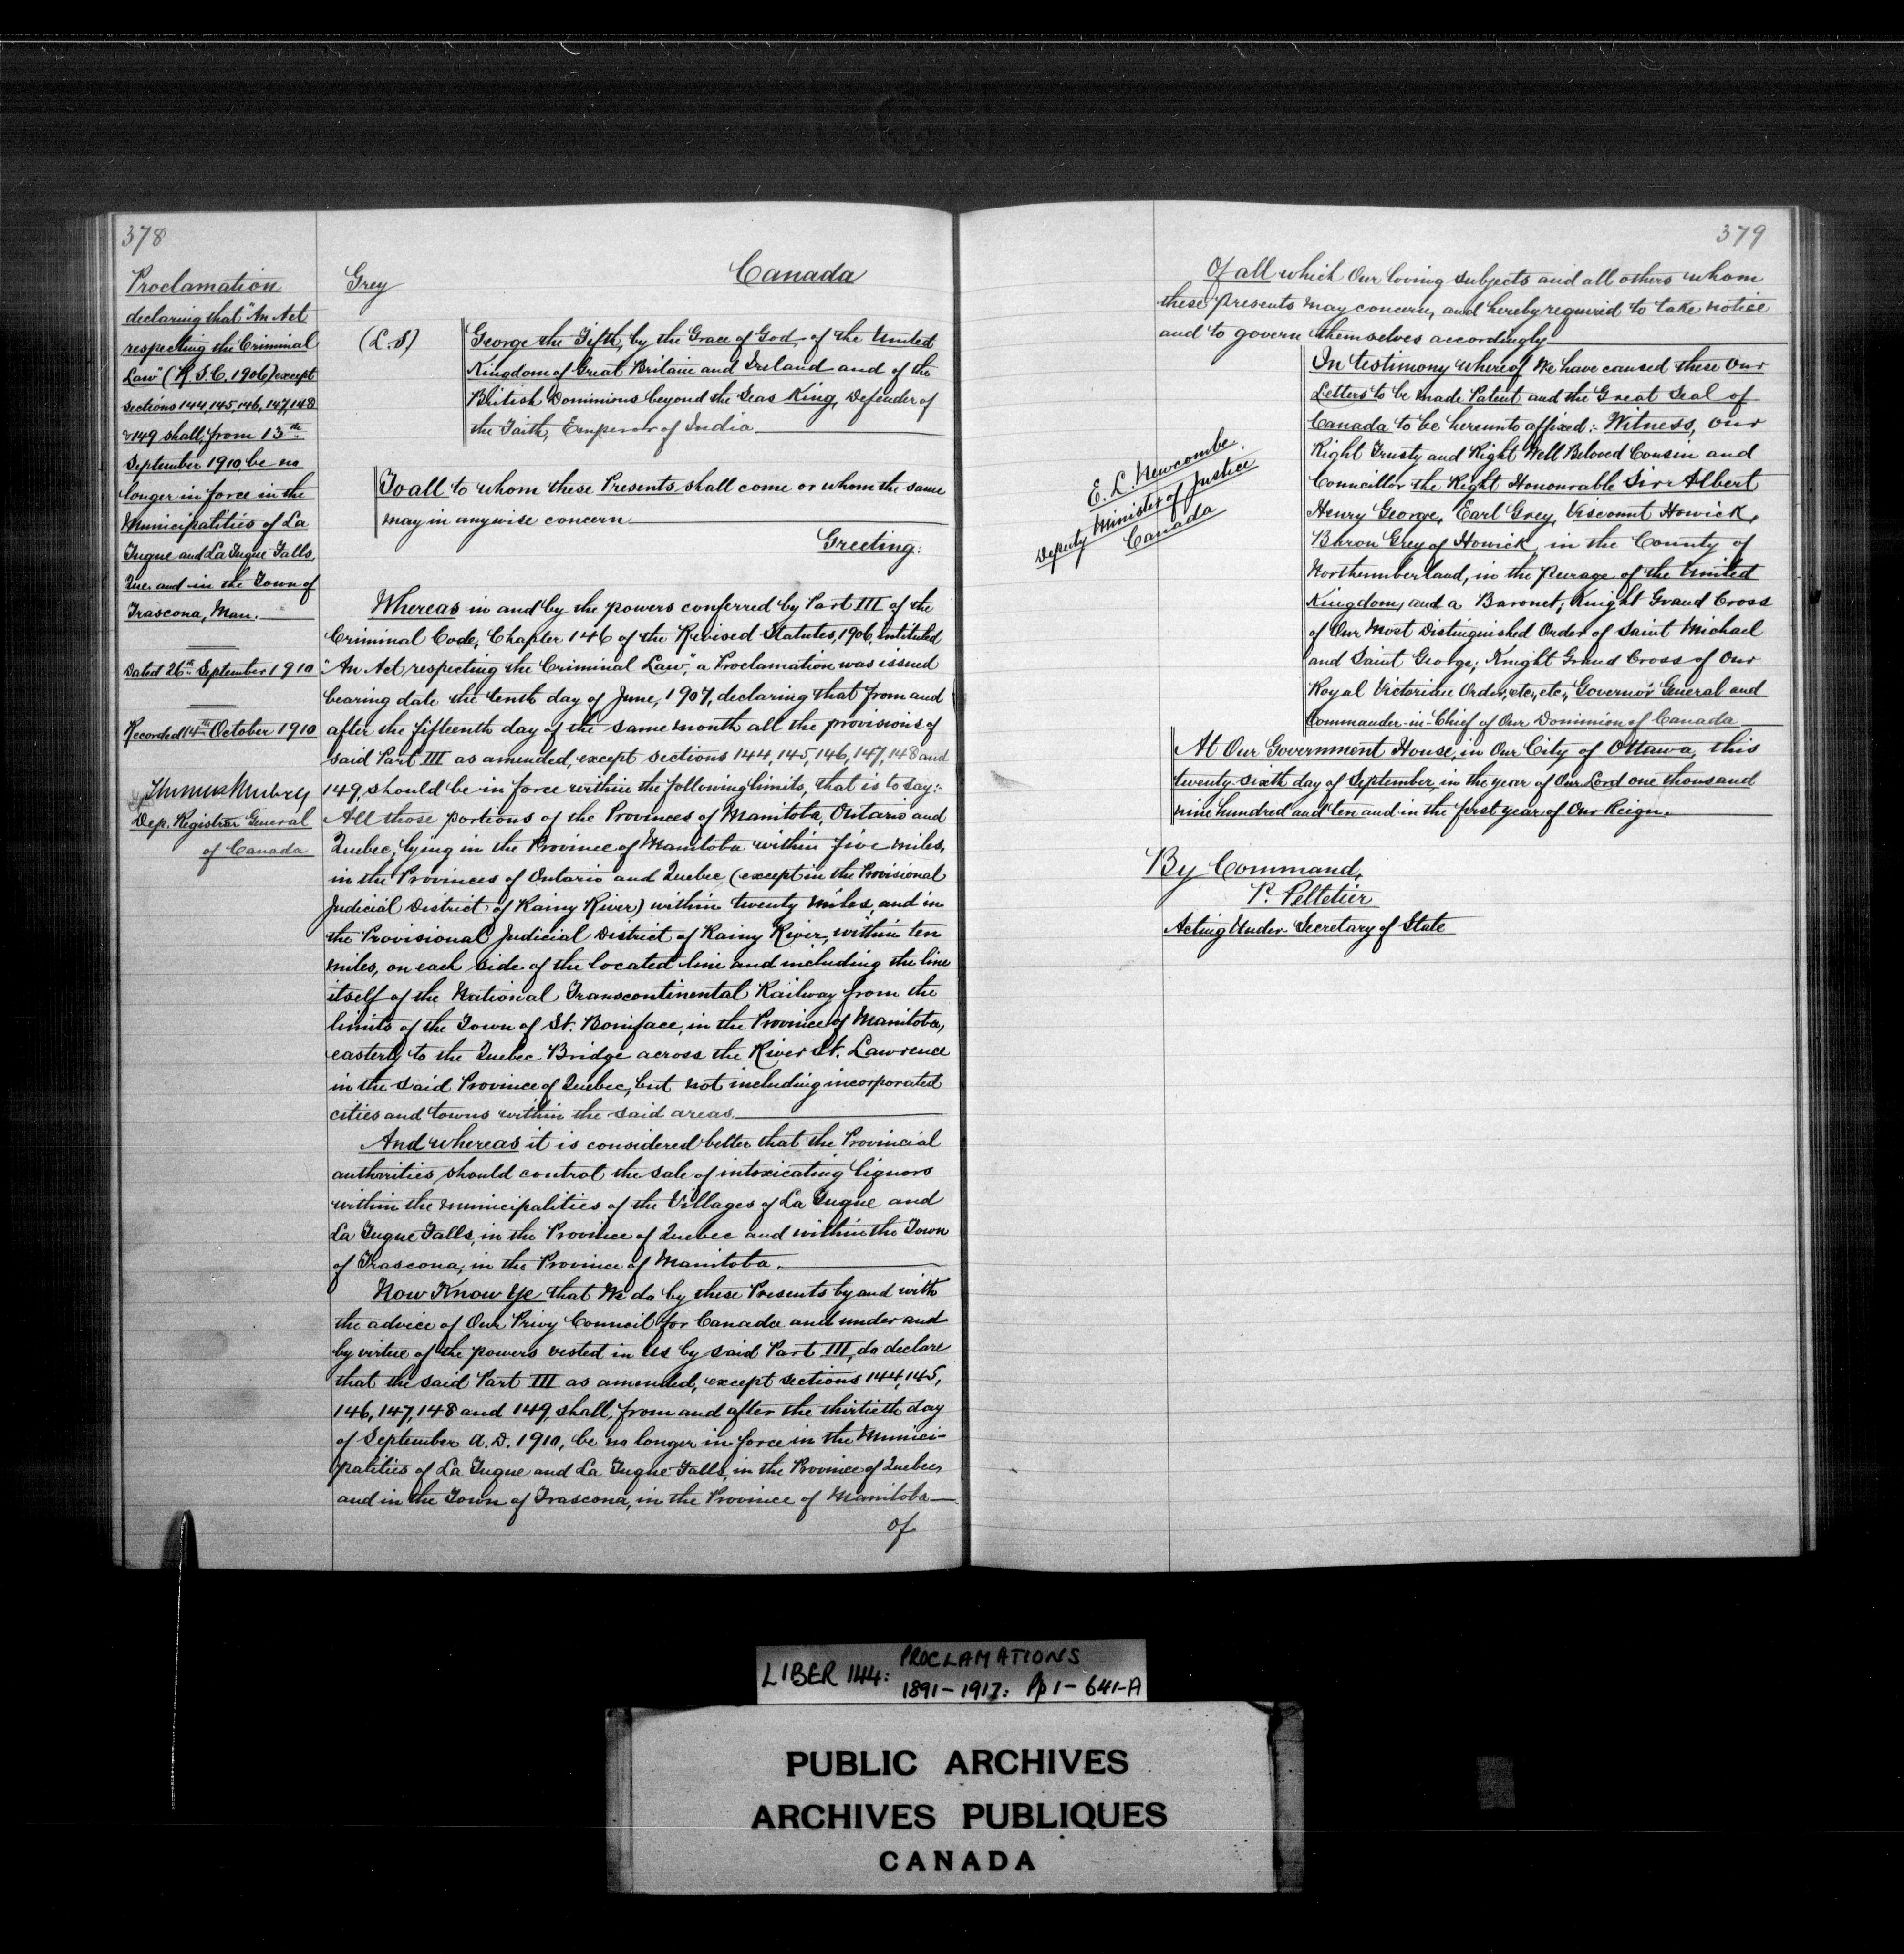 378
Proclamation
declaring that "An Act
respecting the Criminal
Law" (R.S.C. 1906) except
sections 144, 145, 146, 147, 148
& 149 shall, from 13th
September 1910 be no
longer in force in the
Municipalities of La
Tuque and La Tuque Falls,
Que. and in the Town of
Trascona, Man.
Dated 26th September 1910
Recorded 14th October 1910
Dep. Registrar General
of Canada
Grey
Canada
(L.S)
George the Fifth, by the Grace of God, of the United
Kingdom of Great Britain and Ireland and of the
British Dominions beyond the Seas King, Defender of
the Faith, Emperor of India
To all to whom these Presents shall come or whom the same
may in anywise concern
Greeting:
Whereas in and by the powers conferred by Part III of the
Criminal Code, Chapter 146 of the Revised Statutes, 1906, intituled
"An Act respecting the Criminal Law", a Proclamation was issued
bearing date the tenth day of June, 1907, declaring that from and
after the fifteenth day of the same month all the provisions of
said Part III as amended, except sections 144, 145, 146, 147, 148 and
149, should be in force within the following limits, that is to say:-
All those portions of the Provinces of Manitoba, Ontario and
Quebec, lying in the Province of Manitoba within five miles,
in the Provinces of Ontario and Quebec (except in the Provisional
Judicial District of Rainy River) within twenty miles, and in
the Provisional Judicial District of Rainy River, within ten
miles, on each side of the located line and including the line
itself of the National Transcontinental Railway from the
limits of the Town of St. Boniface, in the Province of Manitoba,
easterly to the Quebec Bridge across the River St. Lawrence
in the said Province of Quebec, but not including incorporated
cities and towns within the said areas.
And whereas it is considered better that the Provincial
authorities should control the sale of intoxicating liquors
within the municipalities of the Villages of La Tuque and
La Tuque Falls, in the Province of Quebec and within the Town
of Trascona, in the Province of Manitoba.
Now Know Ye that We do by these Presents by and with
the advice of Our Privy Council for Canada and under and
by virtue of the powers vested in Us by said Part III, do declare
that the said Part III as amended, except sections 144, 145,
146, 147, 148 and 149, shall, from and after the thirtieth day
of September A.D. 1910, be no longer in force in the Munici-
palities of La Tuque and La Tuque Falls, in the Province of Quebec,
and in the Town of Trascona, in the Province of Manitoba
of
379
Of all which Our loving subjects and all others whom
these presents may concern, and hereby required to take notice
and to govern themselves accordingly
In testimony whereof We have caused these Our
Letters to be made Patent and the Great Seal of
Canada to be hereunto affixed:- Witness, Our
Right Trusty and Right Well Beloved Cousin and
Councillor the Right Honourable Sir Albert
Henry George, Earl Grey, Viscount Howick,
Baron Grey of Howick, in the County of
Northumberland, in the peerage of the United
Kingdom, and a Baronet; Knight Grand Cross
of Our Most Distinguished Order of Saint Michael
and Saint George; Knight Grand Cross of Our
Royal Victorian Order, etc., etc., Governor General and
Commander-in-Chief of Our Dominion of Canada
At Our Government House, in Our City of Ottawa, this
twenty-sixth day of September, in the year of Our Lord one thousand
nine hundred and ten and in the first year of Our Reign.
E. L. Newcombe
Deputy Minister of Justice
Canada
By Command,
P. Pelletier
Acting Under-Secretary of State
LIBER 144: PROCLAMATIONS
1891-1917: Pp 1-641-A
PUBLIC ARCHIVES
ARCHIVES PUBLIQUES
CANADA